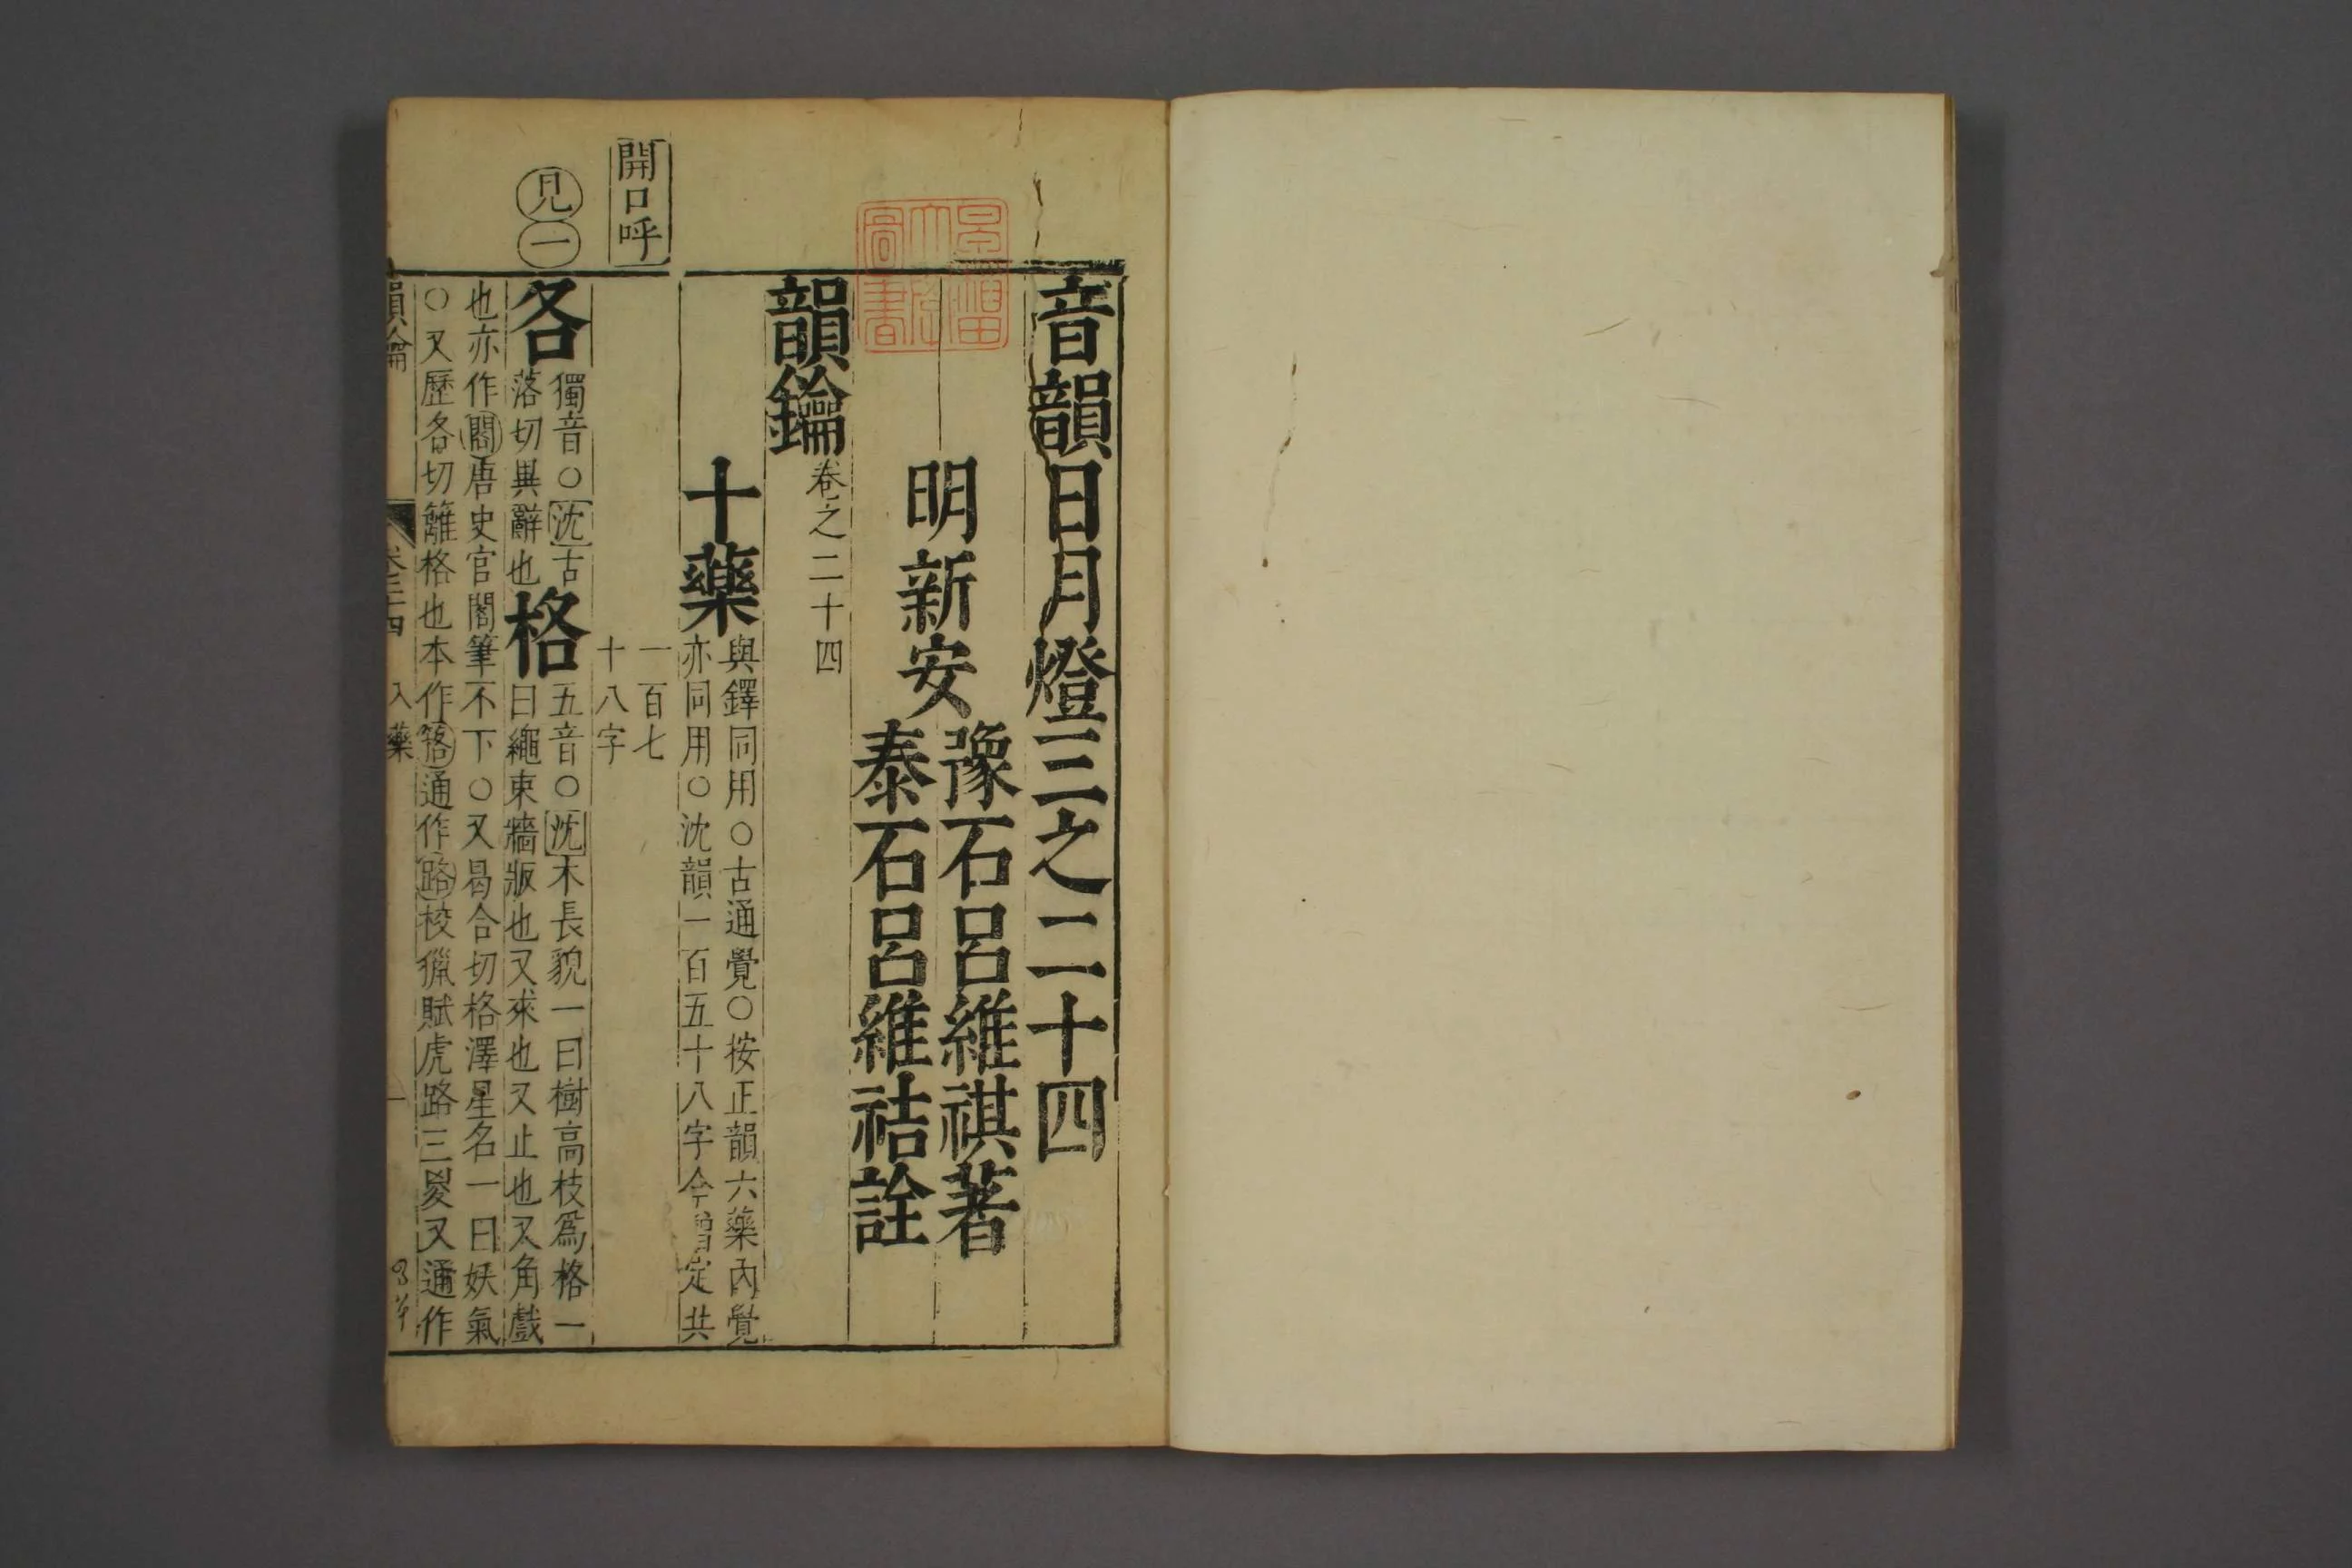 音韻日月燈三之二十四
明新安
豫石呂維祺著
泰石呂維祮詮
韻鑰卷之二十四
十藥
與鐸同用○古通覺○按正韻六藥內覺
亦同用○沈韻一百五十八字今增定共
一百七
十八字
開口呼
見一
各
獨音○沈古
落切異辭也
格
五音○沈木長貌一曰樹高枝爲格一
曰繩束牆版也又來也又止也又角戲
也亦作閣唐史官閣筆不下○又曷合切格澤星名一曰妖氣
○又歷各切籬格也本作笿通作路校獵賦虎路三嵏又通作
韻鑰 卷二十四 入藥 一